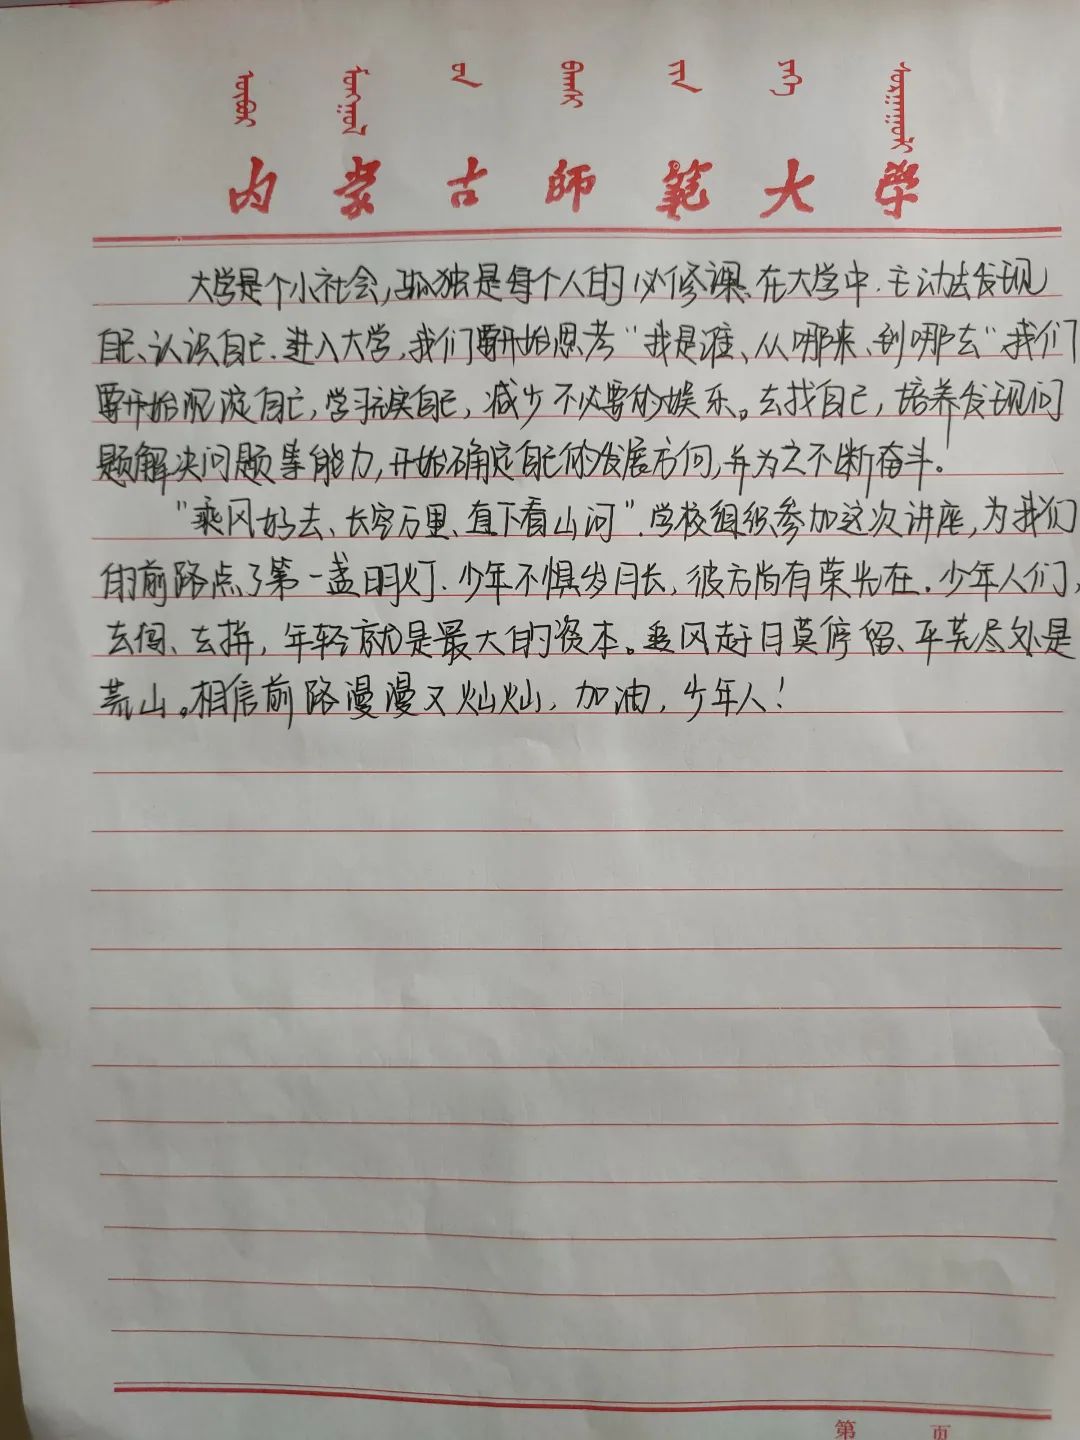 内蒙古师范大学
大学是个小社会,孤独是每个人的必修课、在大学中.主动去发现
自己、认识自己.进入大学,我们要开始思考“我是谁、从哪来、到哪去“我们
要开始沉淀自己,学习充实自己,减少不必要的娱乐。去找自己,培养发现问
题解决问题等能力,开始确定自己的发展方向,并为之不断奋斗!
“乘风好去、长空万里、直下看山河”.学校组织参加这次讲座,为我们
的前路点了第一盏明灯.少年不惧岁月长,彼方尚有荣光在.少年人们,
去闯、去拼,年轻就是最大的资本。追风赶月莫停留、平芜尽处是
荒山。相信前路漫漫又灿灿,加油,少年人!
第 页